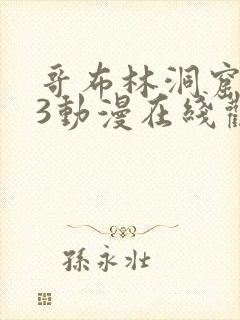 哥布林洞窟
3動漫在綫觀
孫永壯